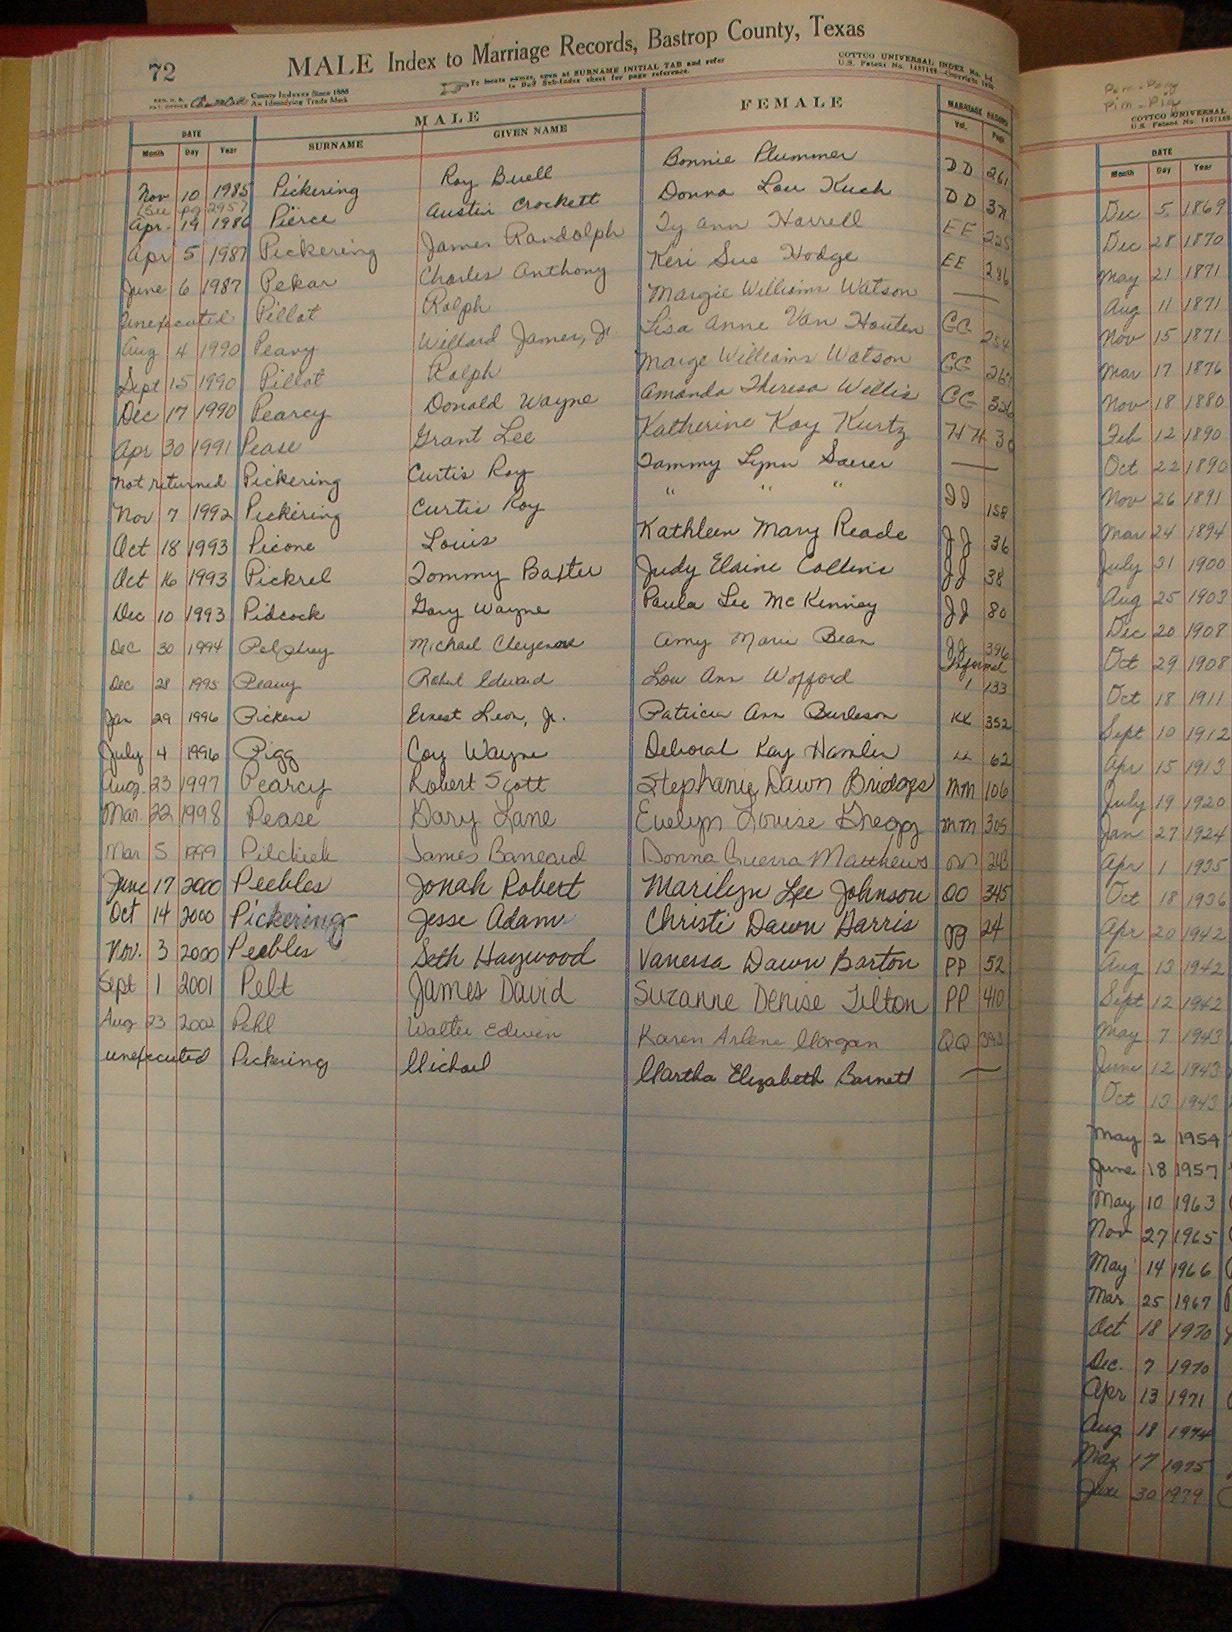 72
MALE Index to Marriage Records, Bastrop County, Texas
To locate names, open at SURNAME INITIAL TAB and refer
to Buff Sub-Index sheet for page reference.
COTTCO UNIVERSAL INDEX No.
U.S. Patent No. Copyright
County Indexes Since 1888
An Identifying Trade Mark
DATE MALE FEMALE MARRIAGE RECORD
Month Day Year SURNAME GIVEN NAME Vol. Page
Nov 10 1985 Pickering Roy Buell Bonnie Plummer DD 261
(See pg 295)
Apr. 19 1986 Pierce Austin Crockett Donna Lou Kuch DD
Apr 5 1987 Pickering James Randolph Ty Ann Harrell EE 225
June 6 1987 Pekar Charles Anthony Keri Sue Hodge EE 286
Unexecuted Pillot Ralph Margie Williams Watson —
Aug 4 1990 Peavy Willard James, Jr. Lisa Anne Van Houten GG 254
Sept 15 1990 Pillot Ralph Marge Williams Watson GG 267
Dec 17 1990 Pearcy Donald Wayne Amanda Theresa Willis GG 326
Apr 30 1991 Pease Grant Lee Katherine Kay Kurtz HH 30
not returned Pickering Curtis Roy Tammy Lynn Sauer —
Nov 7 1992 Pickering Curtis Roy " " " II 158
Oct 18 1993 Picone Louis Kathleen Mary Reade JJ 36
Oct 16 1993 Pickrel Tommy Baxter Judy Elaine Collins JJ 38
Dec 10 1993 Pidcock Gary Wayne Paula Lee McKinney JJ 80
Dec 30 1994 Pelphrey Michael Cheyenne Amy Marie Bean JJ 396
Dec 28 1995 Peavy Robert Edward Lou Ann Wofford Informal 1 133
Jan 29 1996 Ernest Leon, Jr. Patricia Ann Burleson KK 352
July 4 1996 Pigg Coy Wayne Deborah Kay Hamlin LL 62
Aug. 23 1997 Pearcy Robert Scott Stephanie Dawn Bridges MM 106
Mar. 22 1998 Pease Gary Lane Evelyn Louise Gregg MM 305
Mar 5 1999 James Donna Guerra Matthews 243
June 17 2000 Peebles Jonah Robert Marilyn Lee Johnson OO 345
Oct 14 2000 Pickering Jesse Adam Christi Dawn Harris PP 24
Nov. 3 2000 Peebles Seth Haywood Vanessa Dawn Barton PP 52
Sept 1 2001 Pelt James David Suzanne Denise Tilton PP 410
Aug 23 2002 Pehl Walter Edwin Karen Arlene Morgan QQ 393
unexecuted Pickering Michael Martha Elizabeth Barnett —
COTTCO UNIVERSAL
DATE
Month Day Year
Dec 5 1869
Dec 28 1870
May 21 1871
Aug 11 1871
Nov 15 1871
Mar 17 1876
Nov 18 1880
Feb 12 1890
Oct 22 1890
Nov 26 1891
Mar 24 1894
July 31 1900
Aug 25 1903
Dec 20 1908
Oct 29 1908
Oct 18 1911
Sept 10 1912
Apr 15 1913
July 19 1920
Jan 27 1924
Apr 1 1935
Oct 18 1936
Apr 20 1942
Aug 13 1942
Sept 12 1942
May 7 1943
June 12 1943
Oct 13 1943
May 2 1954
June 18 1957
May 10 1963
Nov 27 1965
May 14 1966
Mar 25 1967
Oct 18 1970
Dec. 7 1970
Apr 13 1971
Aug 18 1974
May 17 1975
June 30 1979